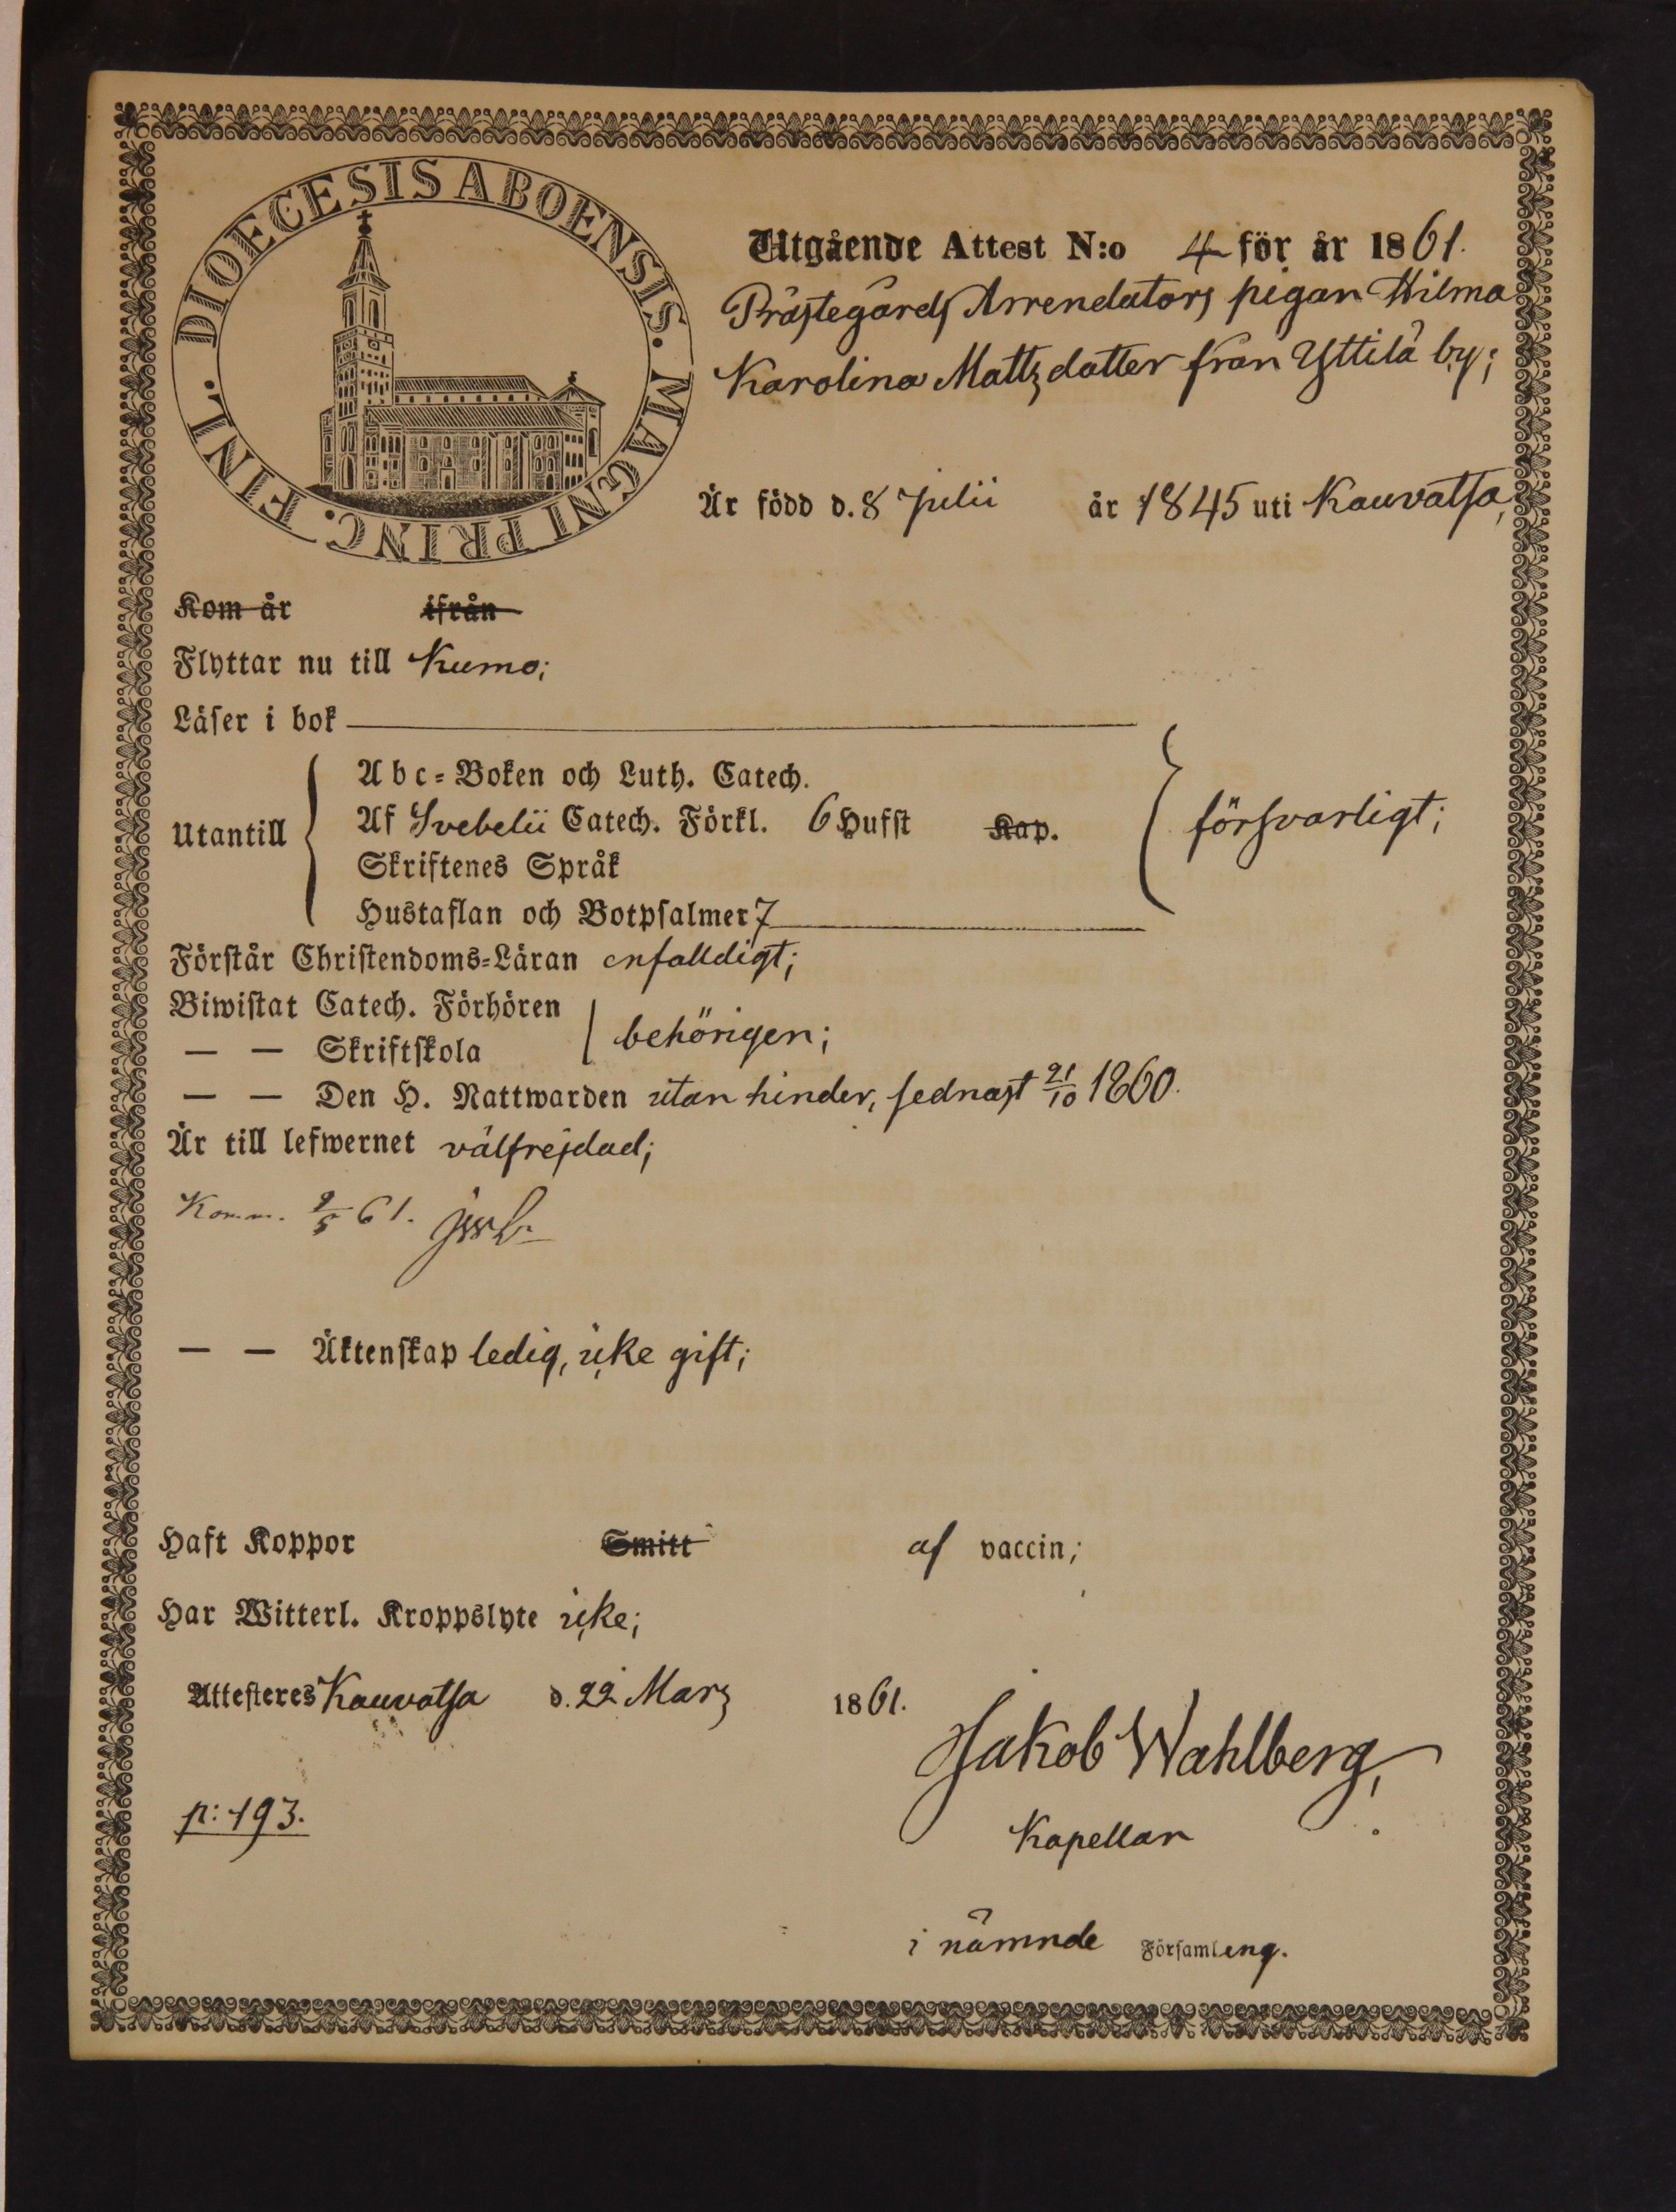 DIOECESIS ABOENSIS. MAGNI PRINC. FINL.
Utgående Attest N:o 4 för år 1861.
Prästegårds Arrendators pigan Wilma
Karolina Mattsdotter från Yttilä by;
Är född d. 8 Julii år 1845 uti Kauvatsa,
Kom år ifrån
Flyttar nu till Kumo;
Läser i bok
Abc-Boken och Luth. Catech.
Utantill Af Svebelii Catech. Förkl. 6 Hufst Kap. försvarligt;
Skriftenes Språk
Hustaflan och Botpsalmer 7
Förstår Christendoms-Läran enfalldigt;
Biwistat Catech. Förhören
— — Skriftskola behörigen;
— — Den H. Nattwarden utan hinder, sednast 21/10 1860.
Är till lefwernet välfrejdad;
Komm. 9/5 61.
— — Äktenskap ledig, icke gift;
Haft Koppor Smitt af vaccin;
Har Witterl. Kroppslyte icke;
Attesteres Kauvatsa d. 22 Mars 1861.
Jakob Wahlberg,
p: 193.
Kapellan
i nämnde Församling.